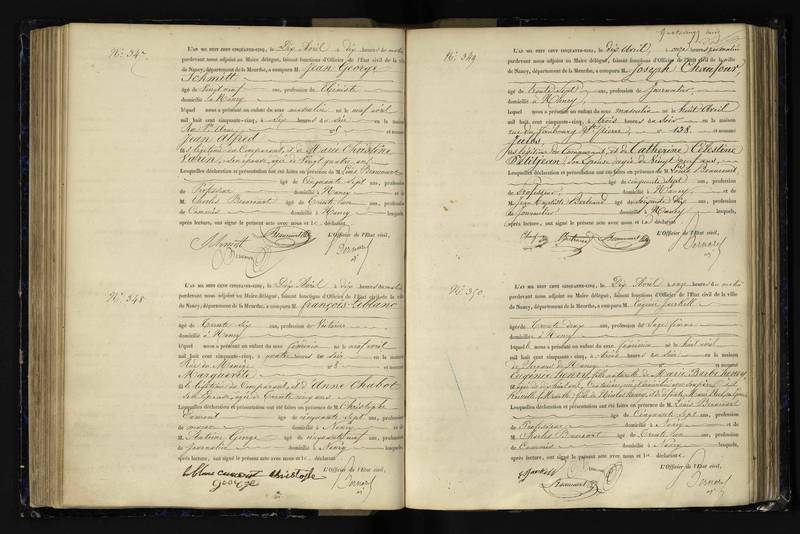 No. 347
L'AN MIL HUIT CENT CINQUANTE-CINQ, le Dix Avril à dix heures du matin
pardevant nous adjoint au Maire délégué, faisant fonctions d'Officier de l'Etat civil de la ville
de Nancy, département de la Meurthe, a comparu M. Jean George
Schmitt
âgé de Vingt neuf ans, profession de Ebéniste
domicilié à Nancy
lequel nous a présenté un enfant du sexe masculin né le neuf avril
mil huit cent cinquante-cinq, à six heures du soir en la maison
et nommé
Jean Alfred
fils légitime du Comparant, et de Marie Christine
son épouse, âgée de Vingt quatre ans
Lesquelles déclaration et présentation ont été faites en présence de M. Louis Beaucourt
âgé de Cinquante Sept ans, profession
de Professeur domicilié à Nancy et de
M. Charles Beaucourt âgé de Trente un ans, profession
de Commis domicilié à Nancy lesquels,
après lecture, ont signé le présent acte avec nous et le déclarant
L'Officier de l'Etat civil,
Schmitt
Bernard
No. 348
L'AN MIL HUIT CENT CINQUANTE-CINQ, le Dix Avril à dix heures du matin
pardevant nous adjoint au Maire délégué, faisant fonctions d'Officier de l'Etat civil de la ville
de Nancy, département de la Meurthe, a comparu M. françois Leblanc
âgé de Trente Six ans, profession de
domicilié à Nancy
lequel nous a présenté un enfant du sexe féminin né le neuf avril
mil huit cent cinquante-cinq, à quatre heures du soir en la maison
Rue du Manège et nommé
Marguerite
fille légitime du Comparant, et d'Anne Chabot
son épouse, âgée de Trente cinq ans
Lesquelles déclaration et présentation ont été faites en présence de M. Christophe
âgé de cinquante sept ans, profession
de maçon domicilié à Nancy et de
M. Antoine George âgé de cinquante neuf ans, profession
de Journalier domicilié à Nancy lesquels,
après lecture, ont signé le présent acte avec nous et le déclarant
L'Officier de l'Etat civil,
le blanc christophe
george
Bernard
No. 349
L'AN MIL HUIT CENT CINQUANTE-CINQ, le dix Avril, à onze heures du matin
pardevant nous adjoint au Maire délégué, faisant fonctions d'Officier de l'Etat civil de la ville
de Nancy, département de la Meurthe, a comparu M. Joseph Chaufour,
âgé de trente sept ans, profession de Journalier,
domicilié à Nancy,
lequel nous a présenté un enfant du sexe masculin né le Huit Avril
mil huit cent cinquante-cinq, à trois heures du soir en la maison
rue du faubourg St. Pierre, no 138. et nommé
Jules
fils légitime du Comparant, et de Catherine Célestine
Petitjean, Son Epouse, âgée de Vingt neuf ans,
Lesquelles déclaration et présentation ont été faites en présence de M. Louis Beaucourt
âgé de cinquante Sept ans, profession
de Professeur, domicilié à Nancy et de
M. Jean Baptiste Bertrand âgé de Soixante dix ans, profession
de Journalier domicilié à Nancy lesquels,
après lecture, ont signé le présent acte avec nous et le déclarant
L'Officier de l'Etat civil,
Bertrand Beaucourt
Bernard
No. 350
L'AN MIL HUIT CENT CINQUANTE-CINQ, le Dix Avril à onze heures du matin
pardevant nous adjoint au Maire délégué, faisant fonctions d'Officier de l'Etat civil de la ville
de Nancy, département de la Meurthe, a comparu M.
âgée de Trente deux ans, profession de Sage femme
domiciliée à Nancy
laquelle nous a présenté un enfant du sexe féminin né le huit avril
mil huit cent cinquante-cinq, à trois heures du soir en la maison
et nommé
Eugénie Henry fille naturelle de Marie Barbe Henry
Lesquelles déclaration et présentation ont été faites en présence de M. Louis Beaucourt
âgé de Cinquante Sept ans, profession
de Professeur domicilié à Nancy et de
M. Charles Beaucourt âgé de Trente un ans, profession
de Commis domicilié à Nancy lesquels,
après lecture, ont signé le présent acte avec nous et la déclarante
L'Officier de l'Etat civil,
Beaucourt
Bernard